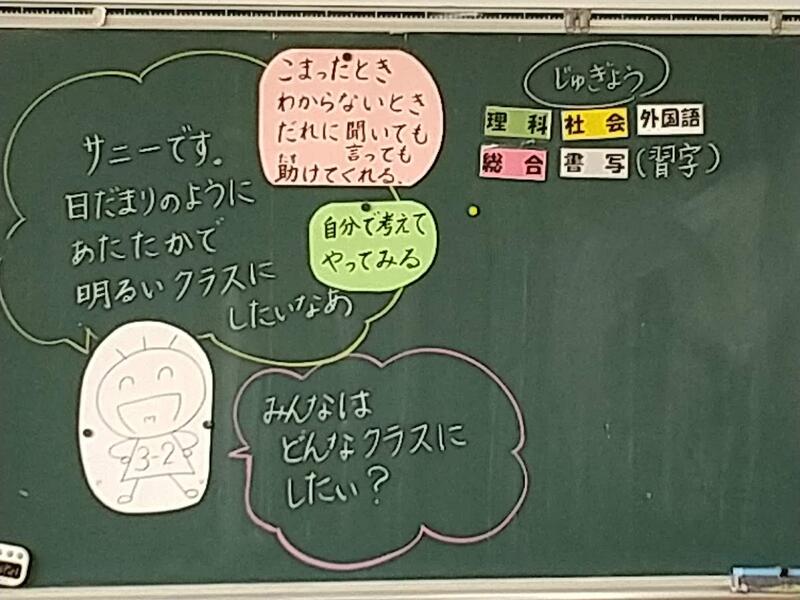 サニーです。
日だまりのように
あたたかで
明るいクラスに
したいなあ
こまったとき
わからないとき
だれに聞いても
言っても
助けてくれる。
たす
自分で考えて
やってみる
3-2
みんなは
どんなクラスに
したい?
じゅぎょう
理科 社会 外国語
総合 書写 (習字)